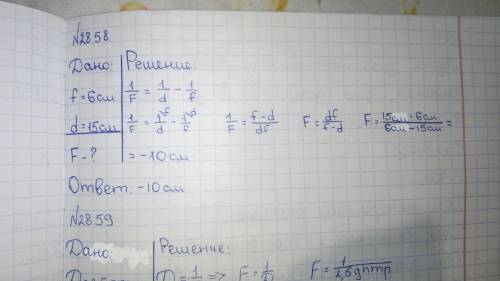 №28.58
Дано: Решение:
f=6см 1/F = 1/d - 1/f
d=15см 1/F = 1\f/d - 1\d/f 1/F = f-d/df F = df/f-d F = 15см · 6см/6см - 15см =
F-? = -10см
Ответ: -10см
№28.59
Дано: Решение:
D = 1/F => F = 1/D F = 1/2,5дптр